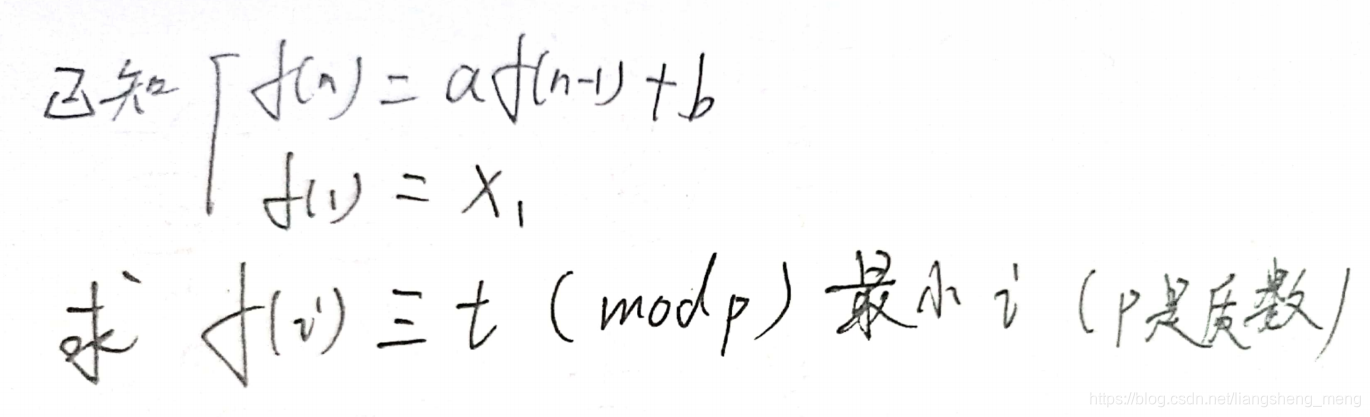 已知 f(n) = af(n-1) + b
f(1) = x₁
求 f(i) ≡ t (mod p) 最小 i (p是质数)
https://blog.csdn.net/liangsheng_meng